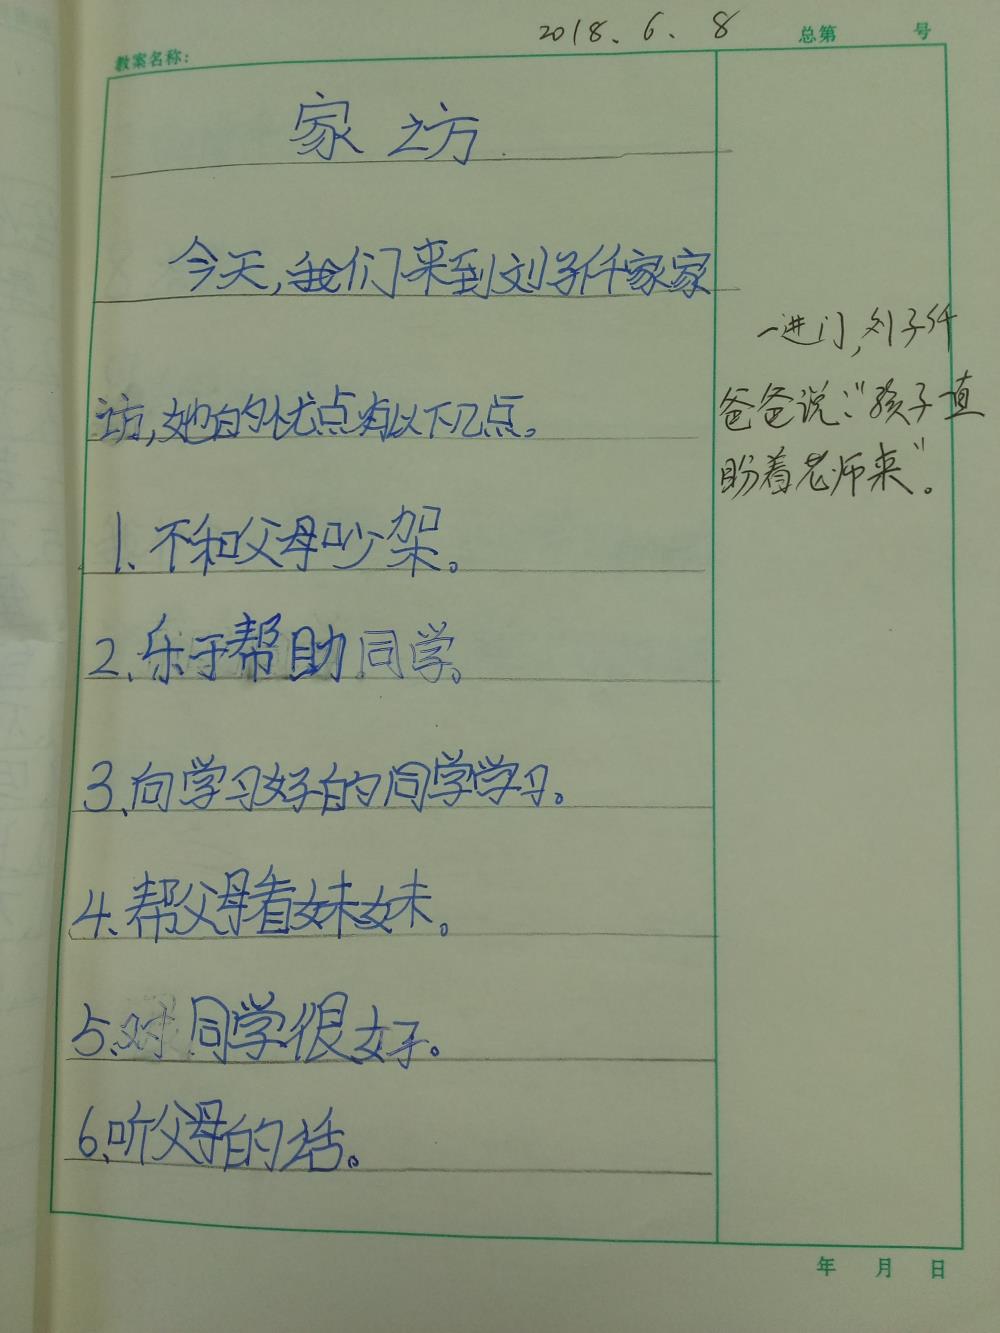 2018.6.8
教案名称: 总第 号
家访
今天,我们来到刘子仟家家
访,她的优点有以下几点。
1、不和父母吵架。
2、乐于帮助同学。
3、向学习好的同学学习。
4、帮父母看妹妹。
5、对同学很好。
6、听父母的话。
一进门,刘子仟
爸爸说:“孩子一直
盼着老师来”。
年 月 日